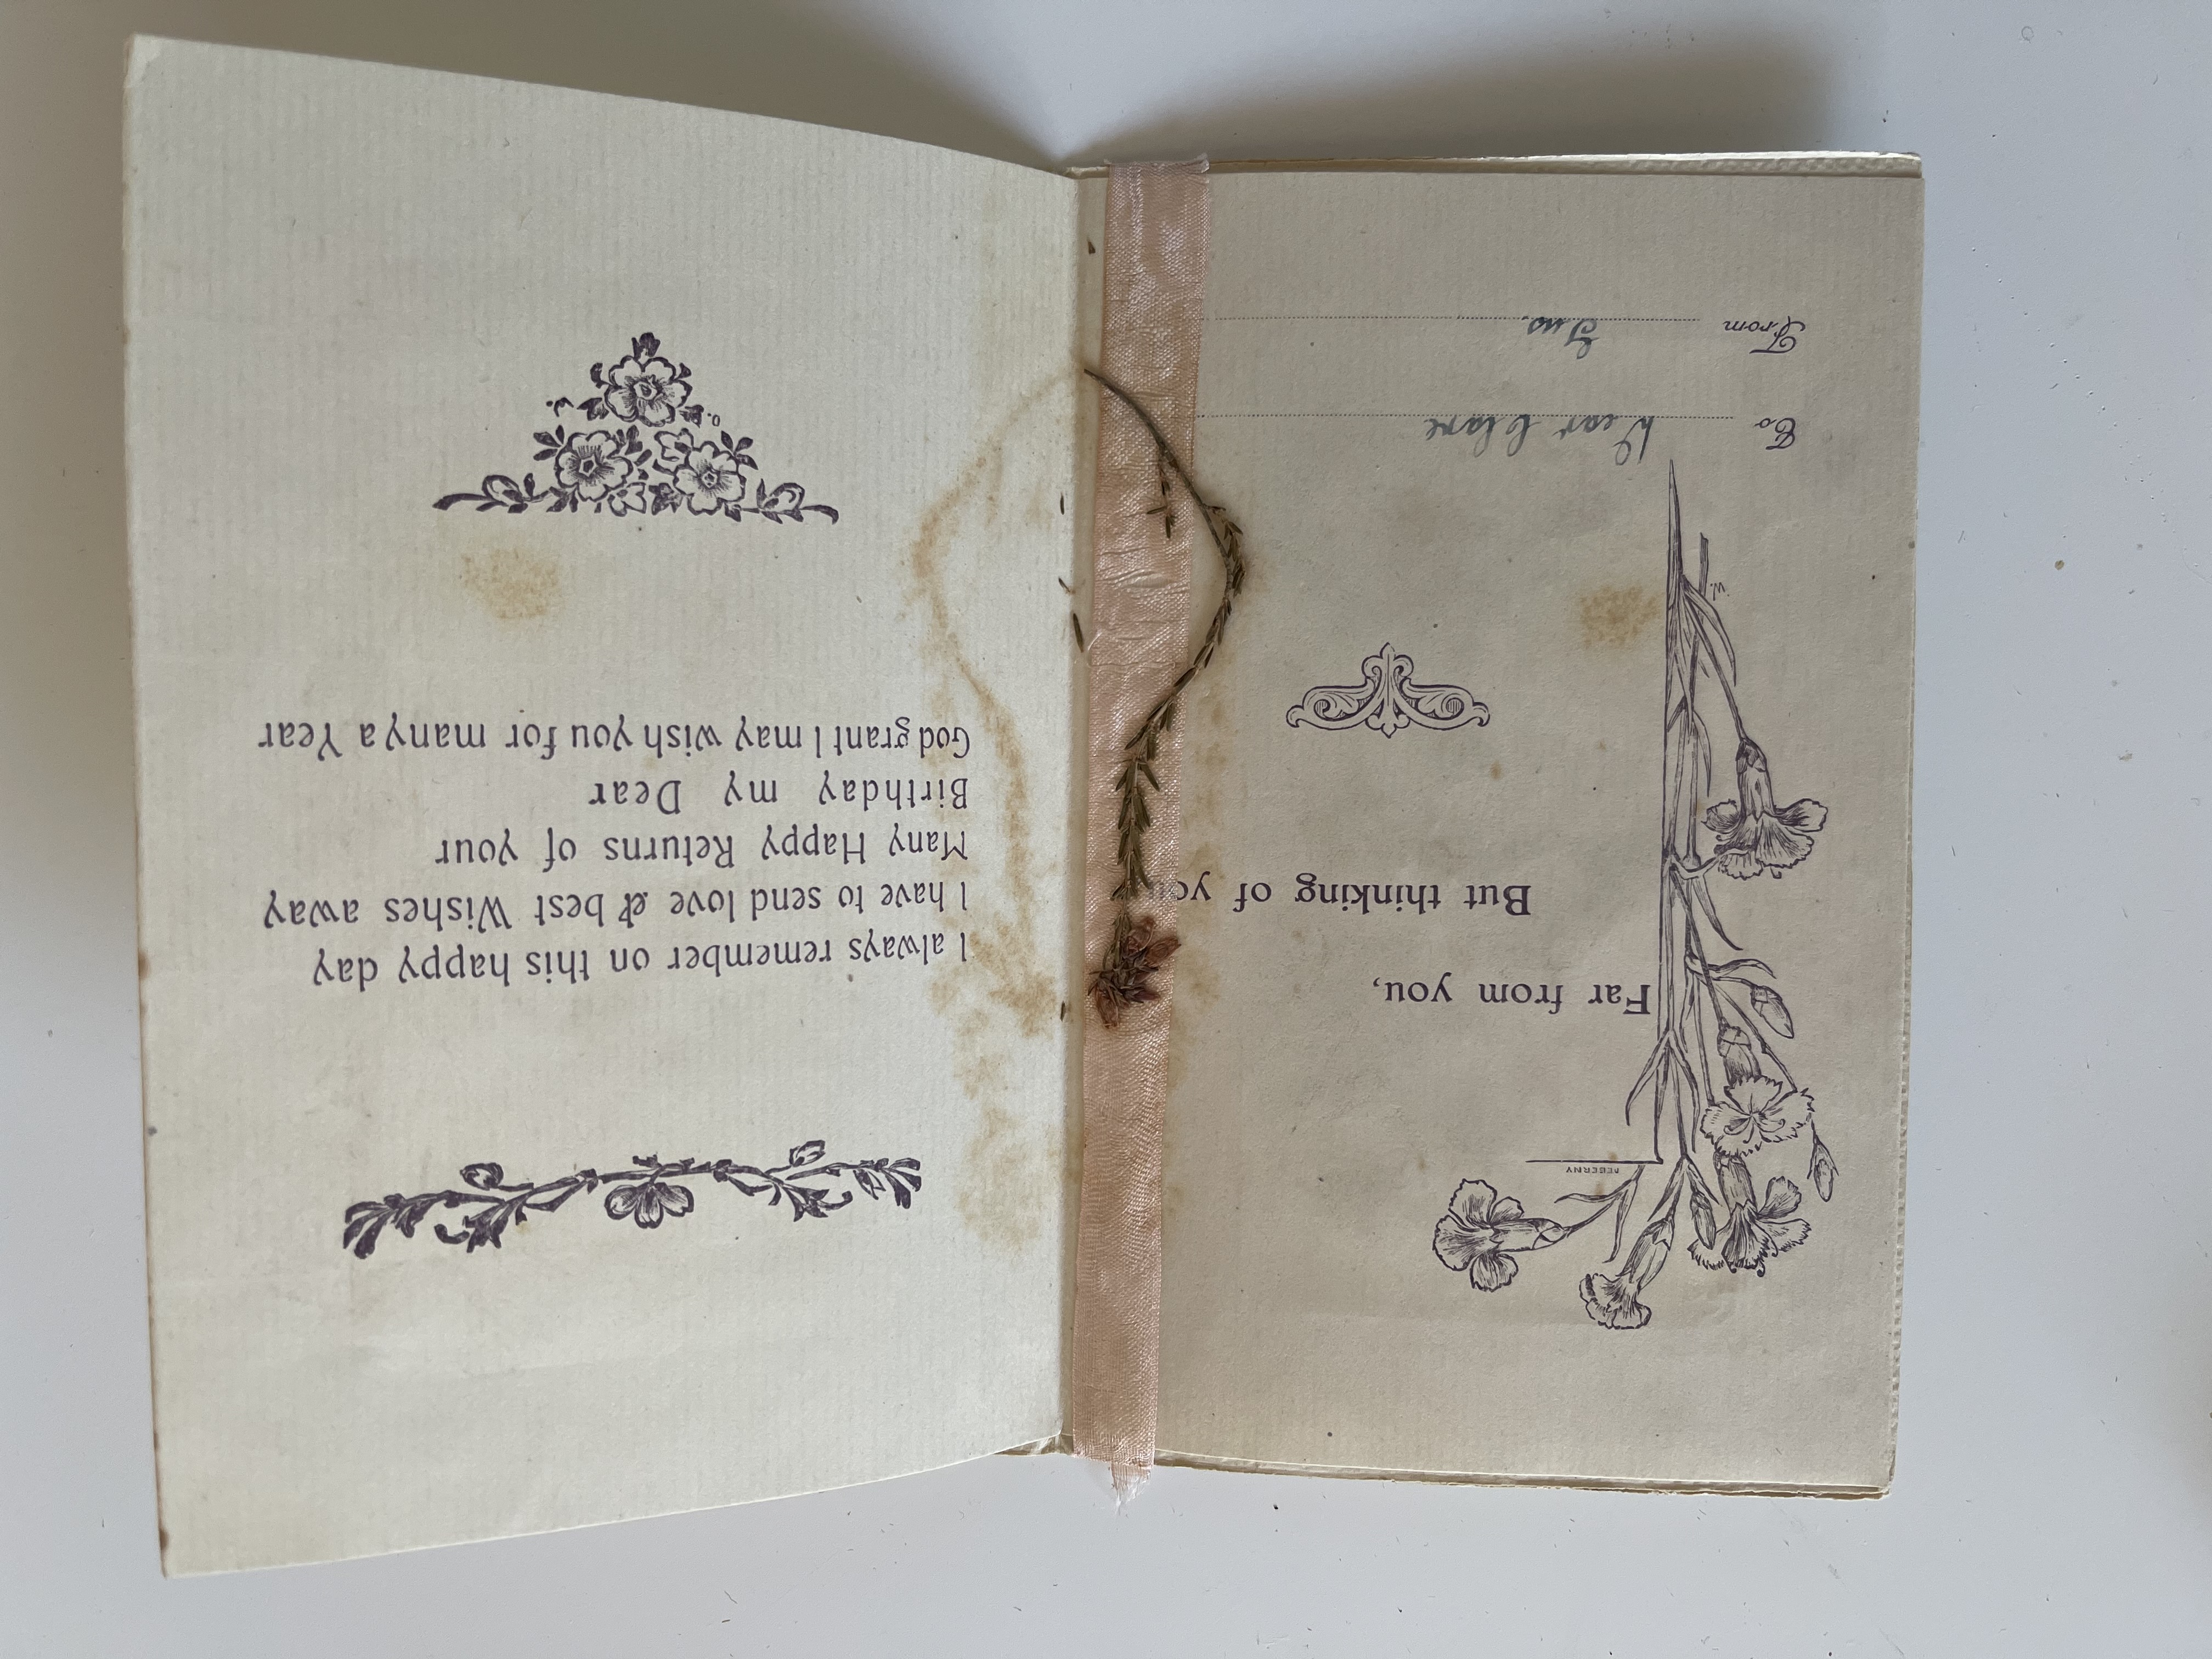 DEBERNY
Far from you,
But thinking of you
W.
To Dear Clare
From
I always remember on this happy day
I have to send love & best Wishes away
Many Happy Returns of your
Birthday my Dear
God grant I may wish you for many a Year